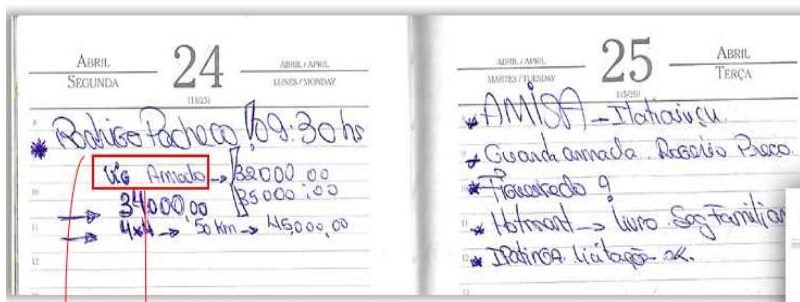 ABRIL
SEGUNDA
24
ABRIL / APRIL
LUNES / MONDAY
* Rodrigo Pacheco! 09:30 hs
Vig Armado → 32000,00
35000,00
→ 34000,00
→ 4x4 → 50 km → 45,000,00
ABRIL / APRIL
MARTES / TUESDAY
25
ABRIL
TERÇA
* AMISA - Itatiaiuçu
* Guarda armada. Rogerio Preco.
* ?
* Hotmart → livro Seg Familiar
* IPatinga licitação ok.
09
10
11
12